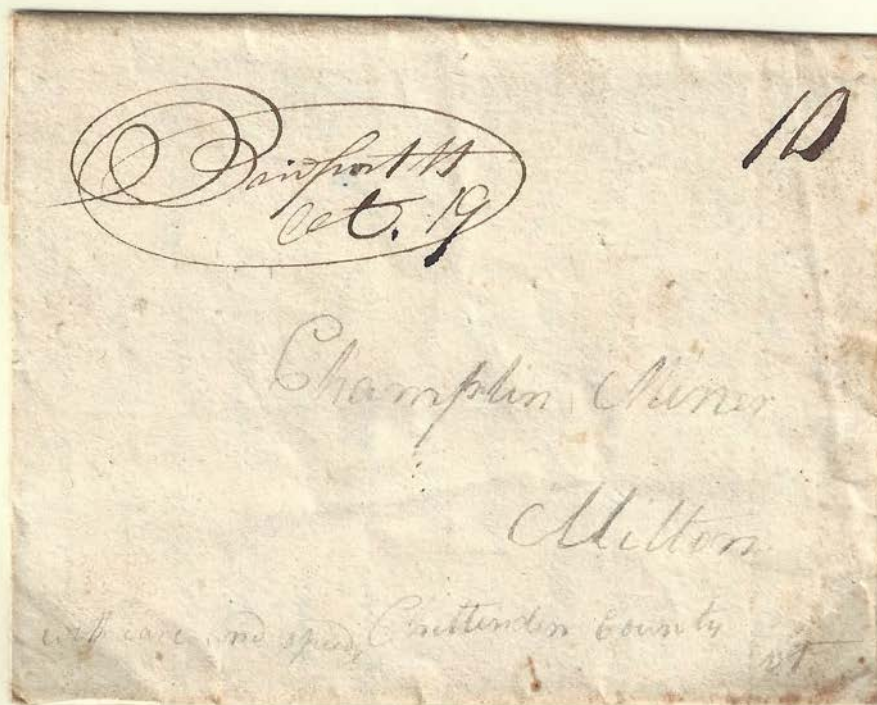 Bridport Vt
Oct. 19
10
Champlin Miner
Milton
with care and speed Chittenden County
Vt